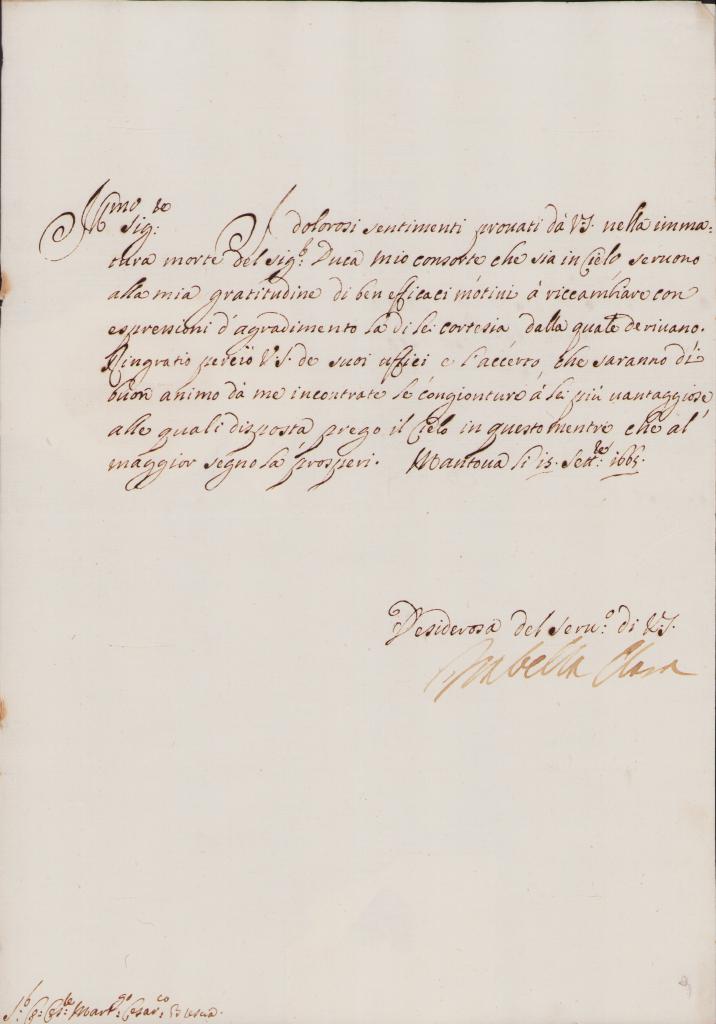 Ill.mo Sig.re
I dolorosi sentimenti prouati dà V.S. nella imma=
tura morte del sig.r Duca mio consorte che sia in Cielo seruono
alla mia gratitudine di ben efficaci motiui à riccambiare con
espressioni d'agradimento la di lei cortesia dalla quale deriuano.
Ringratio perciò V.S. de suoi uffici e l'accerto, che saranno di
buon animo dà me incontrate le congionture à lei più uantaggiose
alle quali disposta prego il Cielo in questo mentre che al
maggior segno la prosperi. Mantoua li 15. Sett.re 1665.
Desiderosa del seru.o di V.S.
Isabella Clara